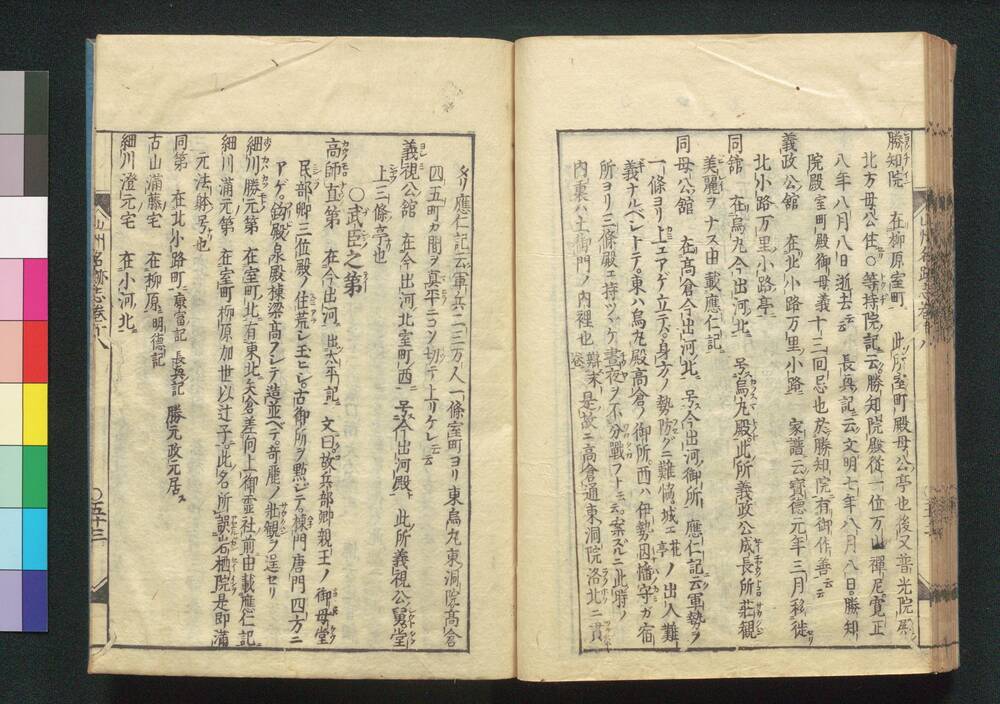 勝知院　在柳原室町　此所室町殿母公亭也後又普光院居
北方母公住○等持院記云勝知院殿從一位万山禪尼寛正
八年八月八日逝去云云　長興記云文明七年八月八日勝知
院殿室町殿御母義十三回忌也於勝知院有御作善云云
義政公舘　在北小路万里小路　家譜云寶德元年三月移徙
北小路万里小路亭
同舘　在烏丸今出河北　号烏丸殿此所義政公成長所莊観
美麗ヲナス由載應仁記
同母公舘　在高倉今出河北　号今出河御所　應仁記云軍勢ヲ
一條ヨリ上エアゲ立テ身方ノ勢防グニ難儀城エ花ノ亭ノ出入難
義ナルベシトテ東ハ烏丸殿高倉ノ御所西ハ伊勢因幡守ガ宿
所ヨリ三條殿エ持ツヾケ晝夜ヲ不分戰フト云云案スルニ此時ノ
内裏ハ土御門ノ内裡也
辯末是故ニ高倉通東洞院洛北ニ貫
タリ應仁記云軍兵二三万人一條室町ヨリ東烏丸東洞院高倉
四五町カ間ヲ真平ニコソ切テ上リケレ云云
義視公舘　在今出河北室町西　号今出河殿　此所義視公舅堂
上三條亭也
○武臣之第
高師直第　在今出河　出太平記　文曰故兵部卿親王ノ御母堂
民部卿三位殿ノ住荒シ玉ヒシ古御所ヲ點ジテ棟門唐門四方ニ
アゲ釣殿泉殿棟梁高フシテ造並ベテ奇麗ノ壯観ヲ逞セリ
細川勝元第　在室町北有東北矢倉差向上御霊社前由載應仁記
細川滿元第　在室町柳原加世以辻子此名所誤岩栖院是即滿
元法躰号也
同第　在北小路町康富記 長興記　勝元政元居ス
古山滿藤宅　在柳原明德記
細川澄元宅　在小河北
山州名跡志卷十八
○五十三